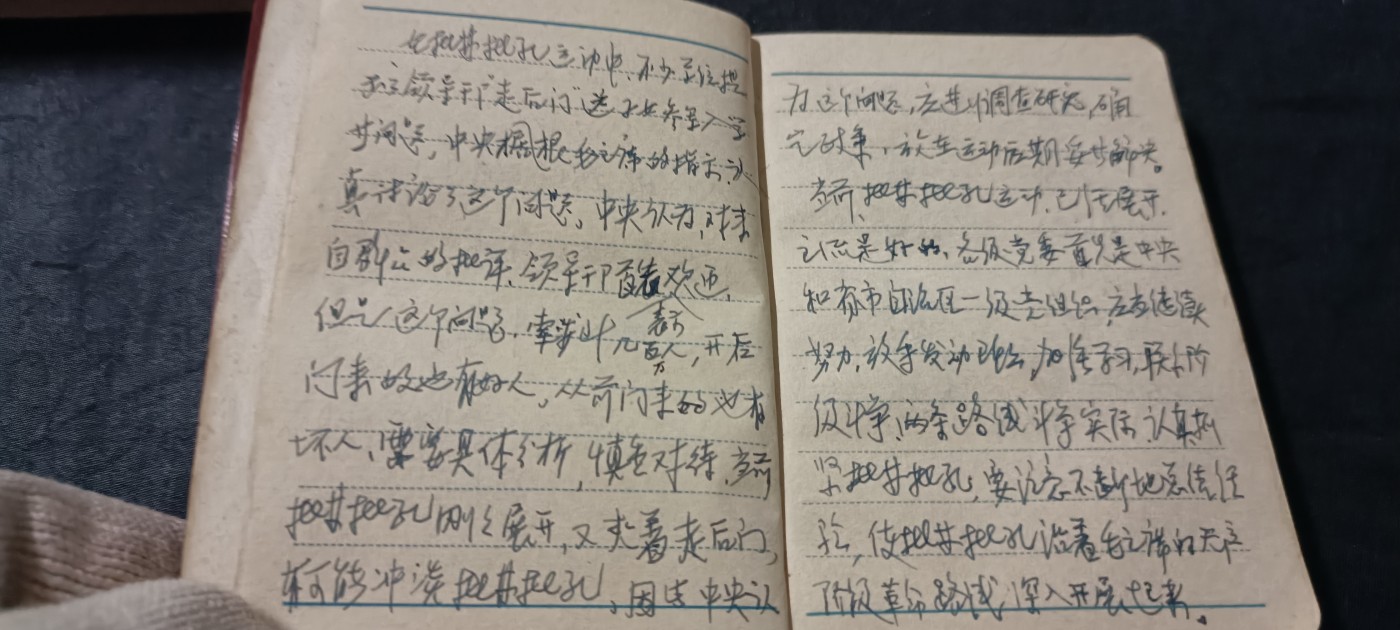 在批林批孔运动中，不少单位提
到了领导干部"走后门"送子女参军入学
等问题，中央根据毛主席的指示，认
真讨论了这个问题。中央认为，对来
自群众的批评，领导干部首先表示欢迎，
但是这个问题，牵涉到几百万人，开后
门来的也有好人，从前门来的也有
坏人，需要具体分析，慎重对待，当前
批林批孔刚刚展开，又夹着走后门，
有可能冲淡批林批孔，因此中央认
为这个问题，应进行调查研究，确
定政策，放在运动后期妥善解决。
当前，批林批孔运动，已经展开，
主流是好的，各级党委首先是中央
和省市自治区一级党组织，应当继续
努力，放手发动群众，加强学习，联系阶
级斗争，两条路线斗争实际，认真抓
紧批林批孔，要注意不断地总结经
验，使批林批孔沿着毛主席的无产
阶级革命路线，深入开展起来。